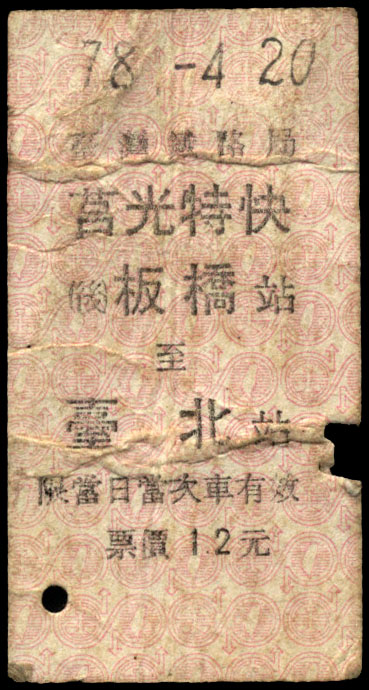 78 -4 20
臺灣鐵路局
莒光特快
板橋站
至
臺北站
限當日當次車有效
票價12元